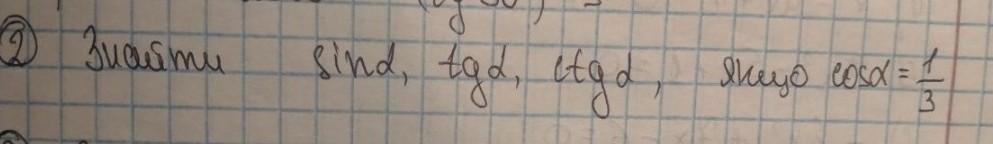 ② Знайти sinα, tgα, ctgα, якщо cosα = 1/3